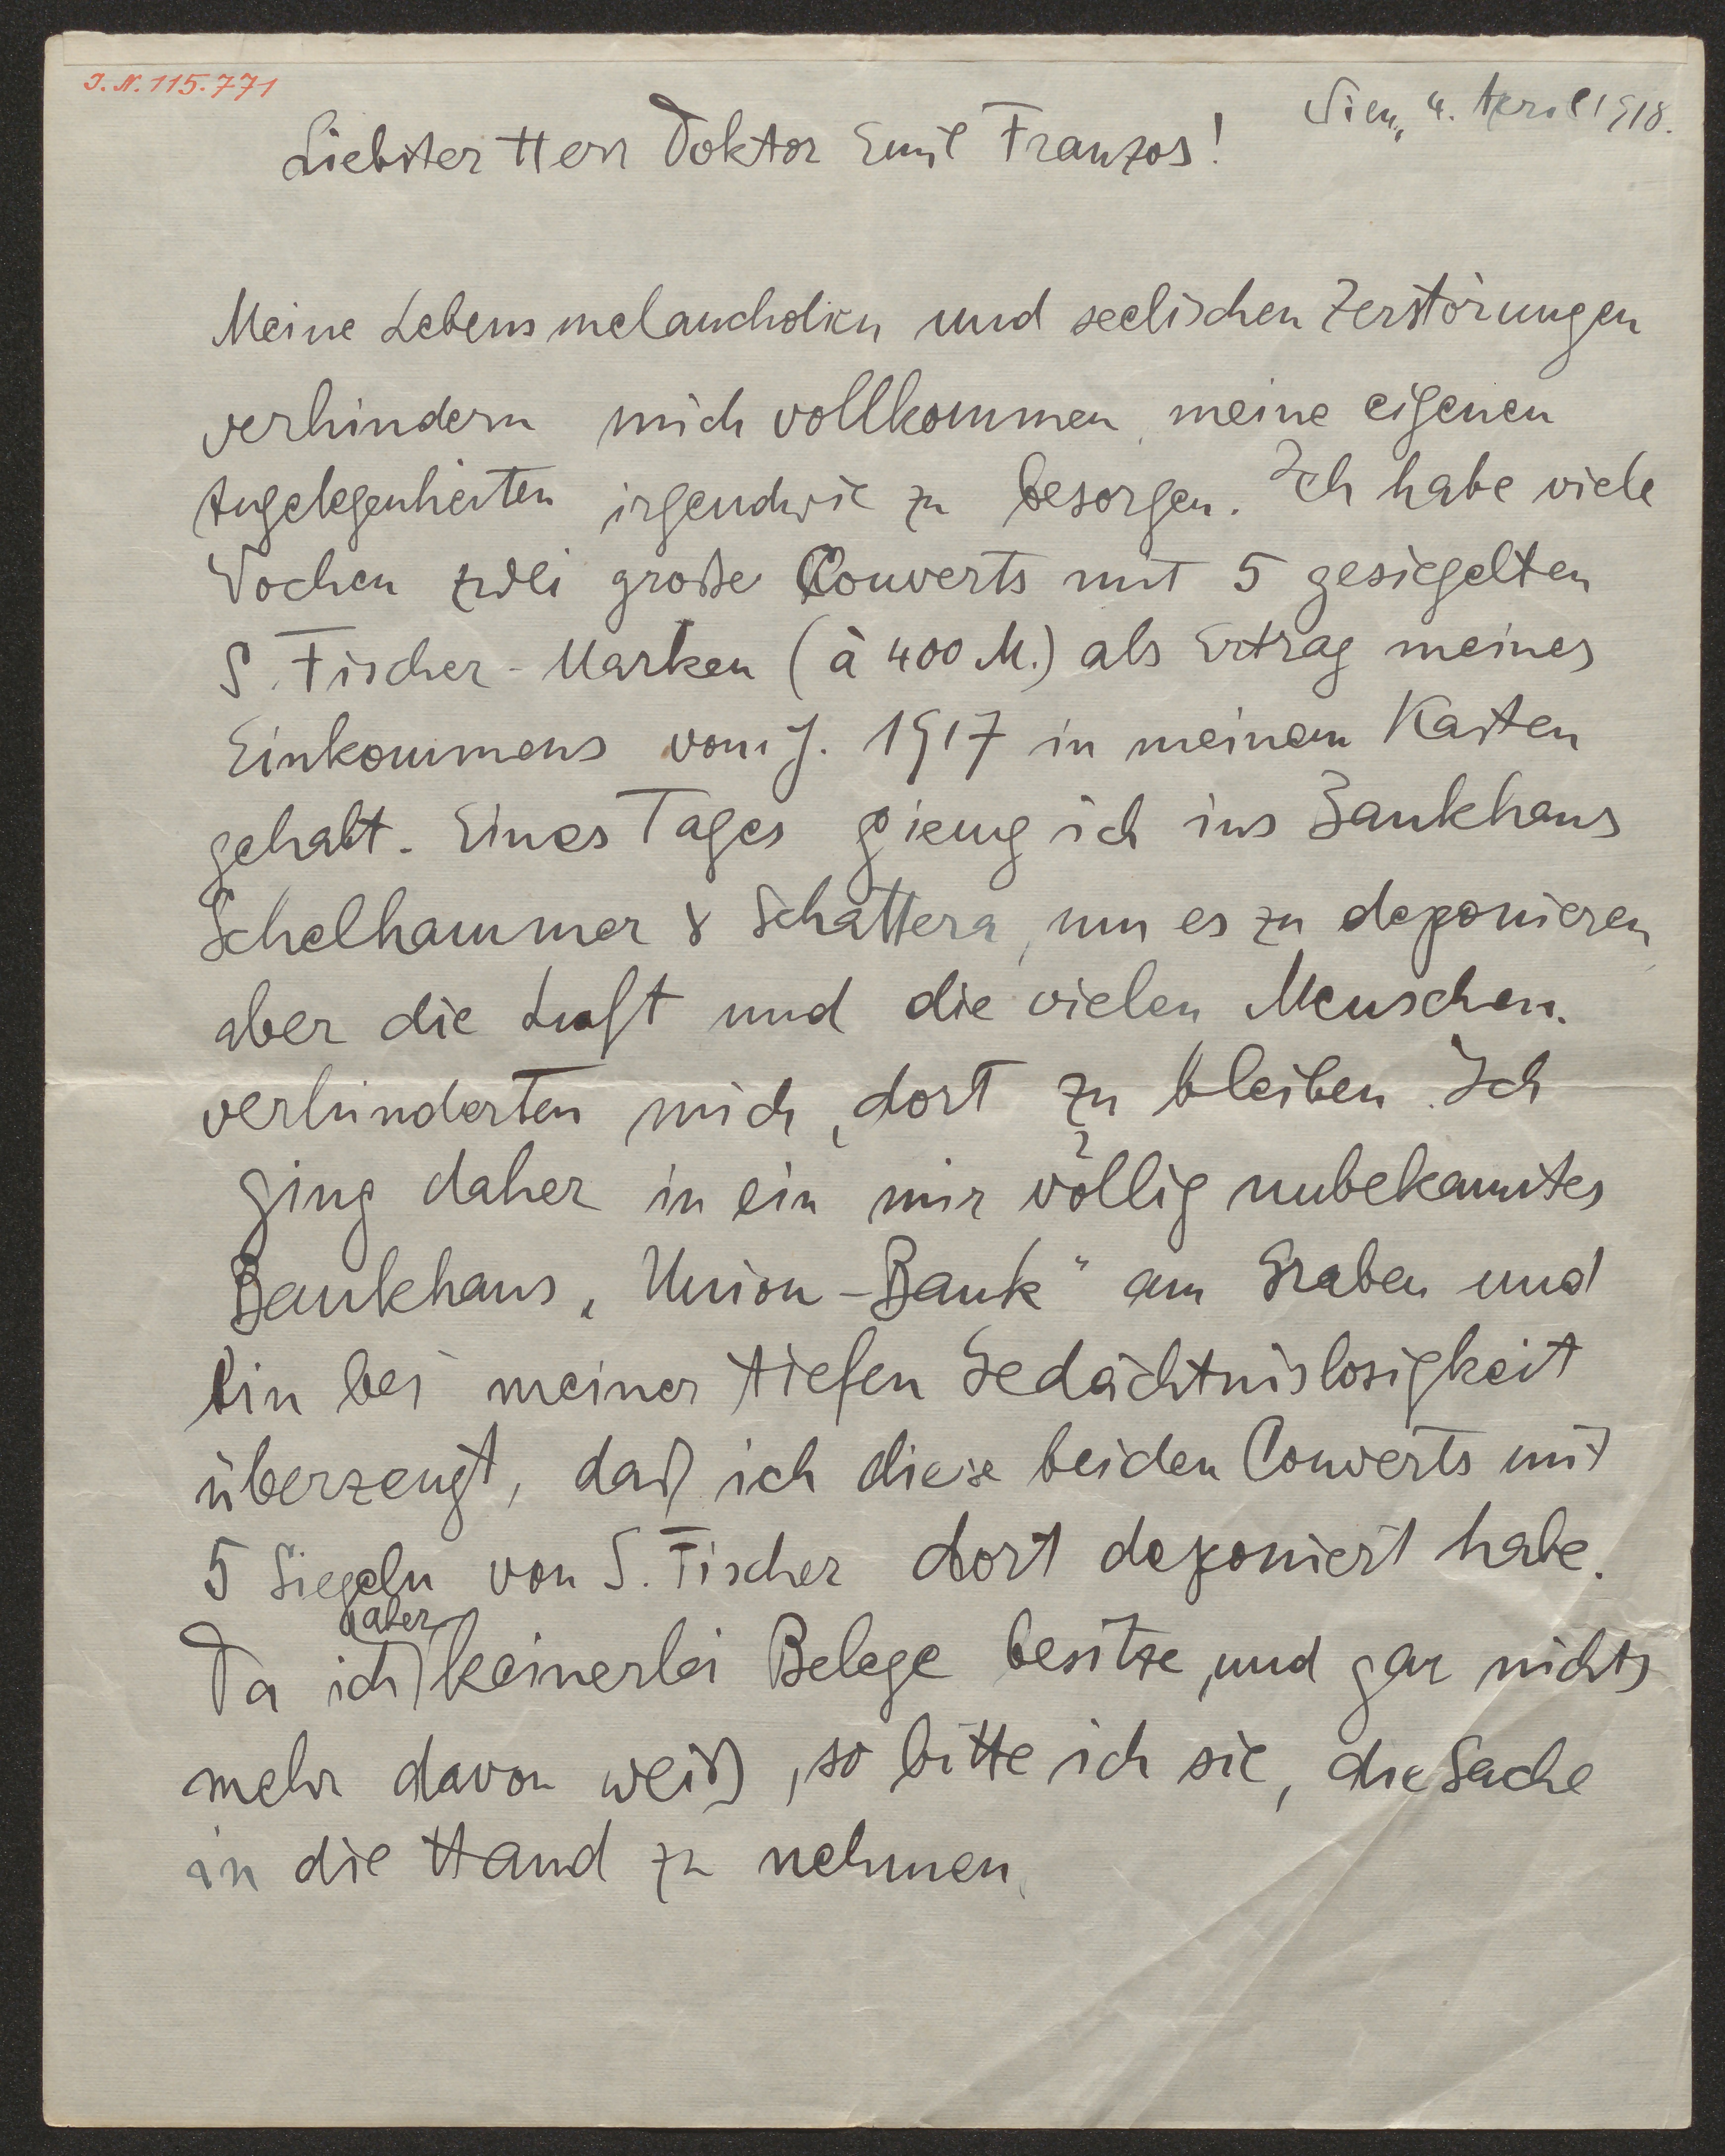 J. N. 115.771
Wien, 4. April 1918.
Liebster Herr Doktor Emil Franzos!
Meine Lebensmelancholien und seelischen Zerstörungen
verhindern mich vollkommen, meine eigenen
Angelegenheiten irgendwie zu besorgen. Ich habe viele
Wochen zwei große Couverts mit 5 gesiegelten
S. Fischer-Marken (à 400 M.) als Ertrag meines
Einkommens vom J. 1917 in meinem Kasten
gehabt. Eines Tages gieng ich ins Bankhaus
Schelhammer & Schattera, um es zu deponieren,
aber die Luft und die vielen Menschen
verhinderten mich, dort zu bleiben. Ich
ging daher in ein mir völlig unbekanntes
Bankhaus „Union-Bank" am Graben und
bin bei meiner tiefen Gedächtnislosigkeit
überzeugt, daß ich diese beiden Couverts mit
5 Siegeln von S. Fischer dort deponiert habe.
Da ich aber keinerlei Belege besitze, und gar nichts
mehr davon weiß, so bitte ich sie, die Sache
in die Hand zu nehmen.